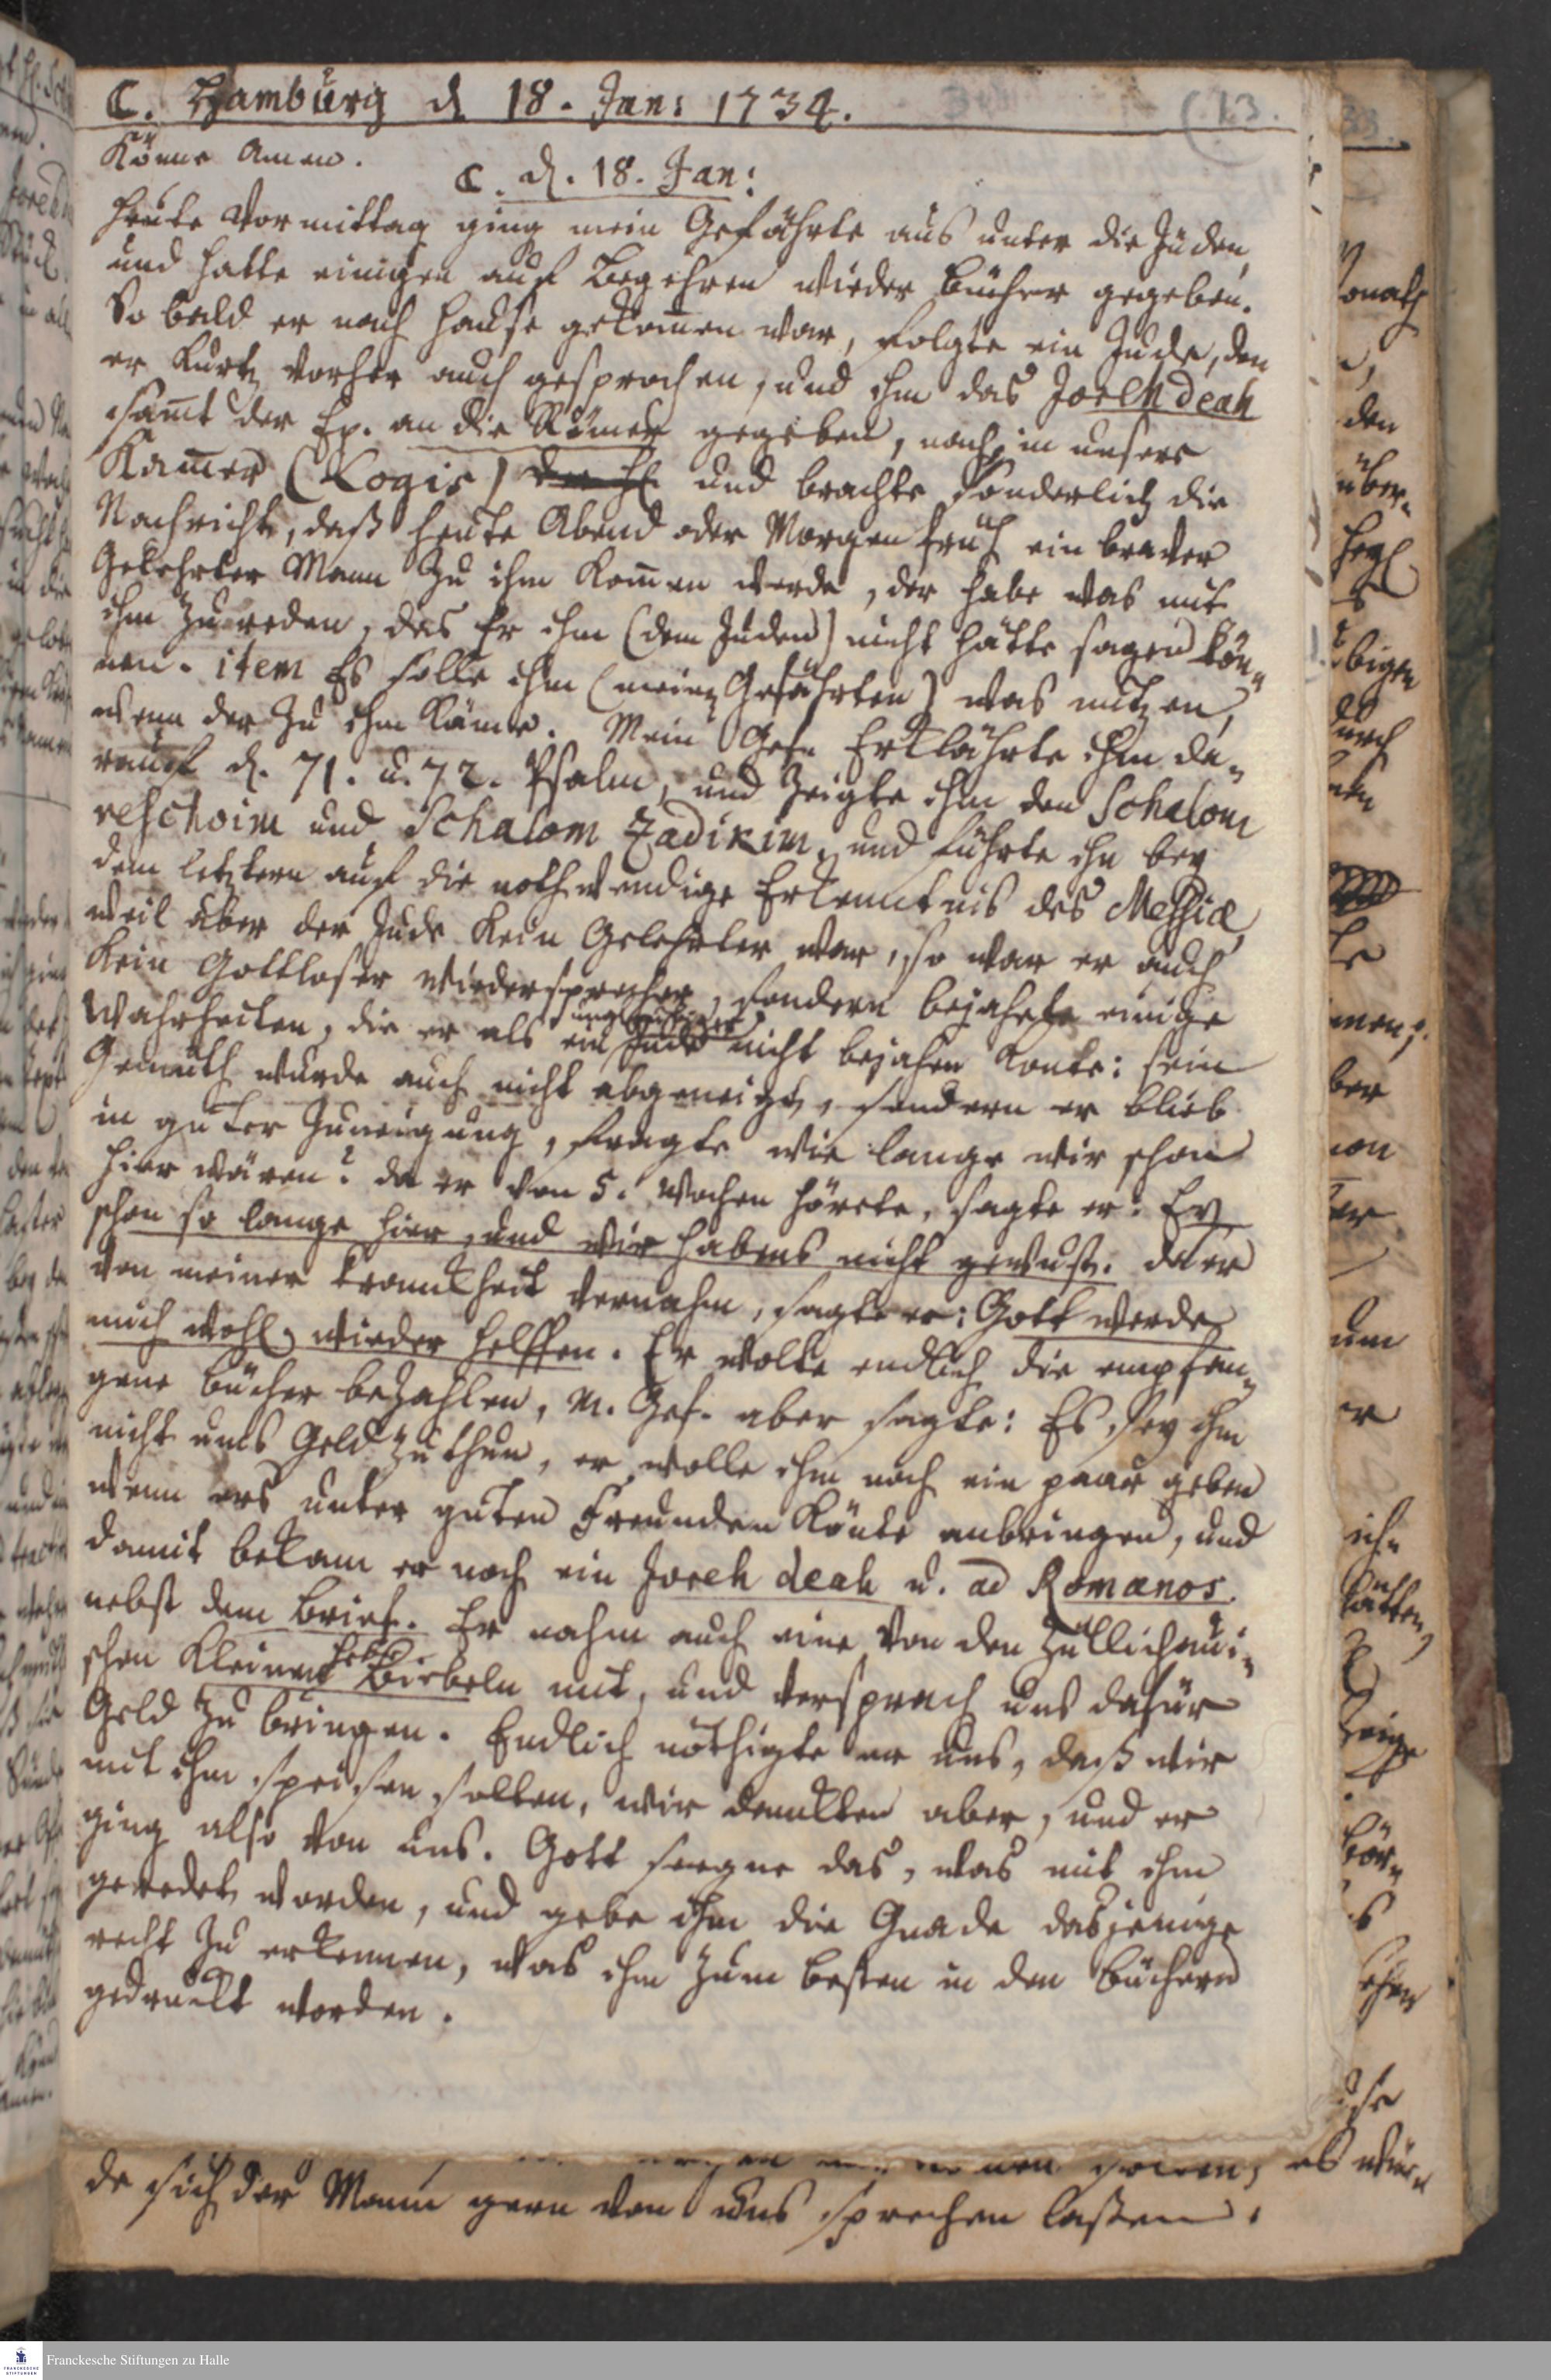 C. Hamburg d 18. Jan: 1734.
(13.
Könne Amen.
C. d. 18. Jan:
Heute Vormittag ging mein Gefährte aus unter die Jüden,
und hatte einigen auf Begehren wieder bücher gegeben.
So bald er nach Hause gekom̄en war, folgte ein Jude, den
er kurtz vorher auch gesprochen, und ihm das Joreh deah
sam̄t der Ep. an die Römer gegeben, nach, in unsere
Kam̄er (Logis) und brachte sonderlich die
Nachricht, daß heute Abend oder Morgen früh ein braver
Gelehrter Mann zu ihm kom̄en werde, der habe was mit
ihm zu reden, das Er ihm (dem Juden) nicht hätte sagen kön-
nen. item Es solle ihm (mein Gefährten) was nützen,
wenn der zu ihm käme. Mein Gefe Erklährte ihm da-
rauf d. 71. u. 72. Psalm, und zeigte ihm den Schalom
reschoim und Schalom Zadikim, und führte ihn bey
dem letztern auf die nothwendige Erkenntnis des Messiæ,
weil aber der Jude kein Gelehrter war, so war er auch
kein Gottloser wiedersprecher, sondern bejahete einige
Wahrheiten, die er als ein ungläubiger Jude nicht bejahen konte: sein
Gemüth wurde auch nicht abgeneigt, sondern er blieb
in guter Zuneigung, fragte wie lange wir schon
hier wären? da er von 5. Wochen hörete, sagte er: Ey
schon so lange hier, und wir habens nicht gewust. da er
von meiner kranckheit vernahm, sagte er: Gott werde
mich wohl wieder helffen. Er wolte endlich die empfan-
gene bücher bezahlen, M. Gef. aber sagte: Es sey ihm
nicht ums Geld zu thun, er wolle ihm noch ein paar geben
wenn ers unter guten Freunden könte anbringen, und
damit bekam er noch ein Joreh deah u. ad Romanos.
nebst dem brief. Er nahm auch eine von den Züllichaui-
schen kleinen hebr. Biebeln mit, und versprach uns dafür
Geld zu bringen. Endlich nöthigte er uns, daß wir
mit ihm speisen solten, wir danckten aber, und er
ging also von uns. Gott seegne das, was mit ihm
geredet worden, und gebe ihm die Gnade dasjenige
recht zu erkennen, was ihm zum besten in den büchern
gedruckt worden.
es wür-
de sich der Mann gern von uns sprechen lassen.
Franckesche Stiftungen zu Halle